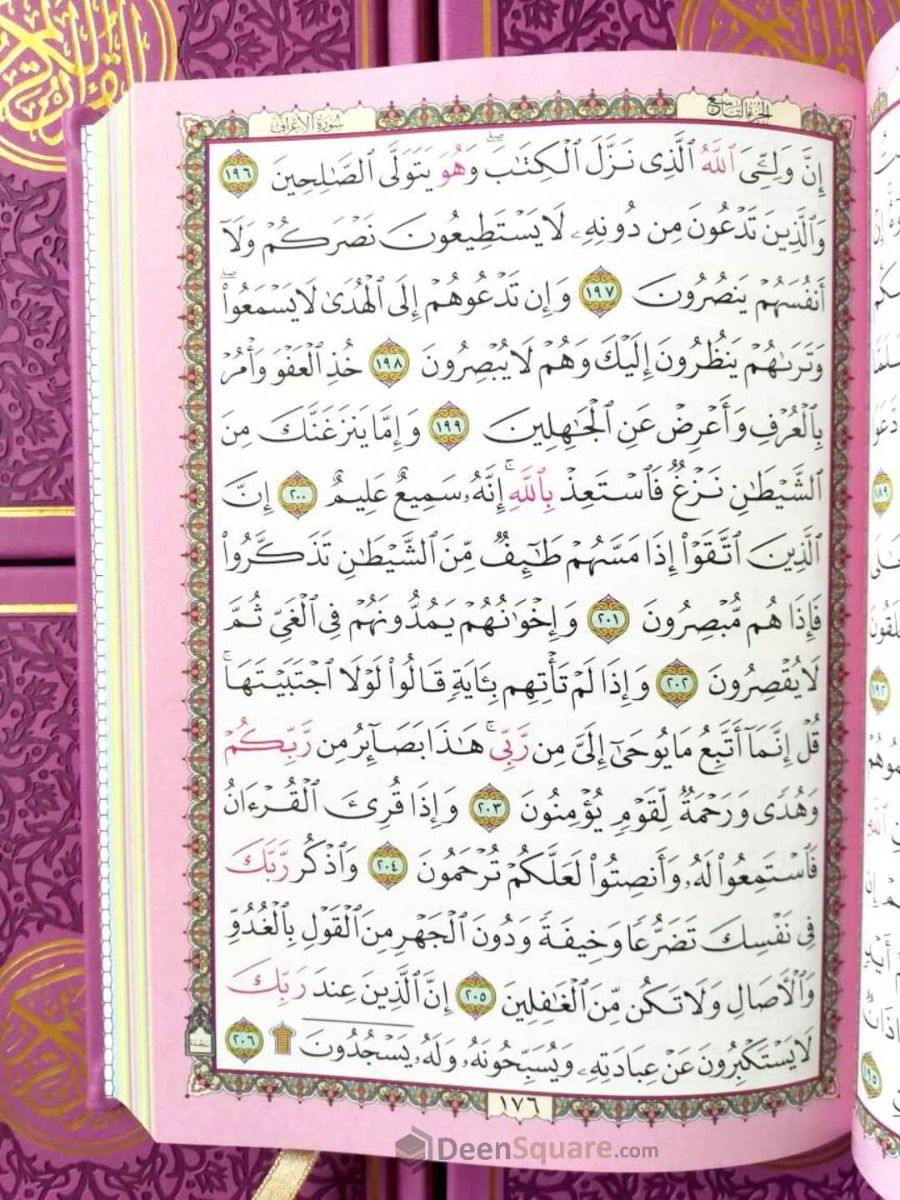 سورة الأعراف
الجزء التاسع
إِنَّ وَلِـِّۧيَ ٱللَّهُ ٱلَّذِي نَزَّلَ ٱلۡكِتَٰبَۖ وَهُوَ يَتَوَلَّى ٱلصَّٰلِحِينَ ١٩٦
وَٱلَّذِينَ تَدۡعُونَ مِن دُونِهِۦ لَا يَسۡتَطِيعُونَ نَصۡرَكُمۡ وَلَآ
أَنفُسَهُمۡ يَنصُرُونَ ١٩٧ وَإِن تَدۡعُوهُمۡ إِلَى ٱلۡهُدَىٰ لَا يَسۡمَعُواْۖ
وَتَرَىٰهُمۡ يَنظُرُونَ إِلَيۡكَ وَهُمۡ لَا يُبۡصِرُونَ ١٩٨ خُذِ ٱلۡعَفۡوَ وَأۡمُرۡ
بِٱلۡعُرۡفِ وَأَعۡرِضۡ عَنِ ٱلۡجَٰهِلِينَ ١٩٩ وَإِمَّا يَنزَغَنَّكَ مِنَ
ٱلشَّيۡطَٰنِ نَزۡغٞ فَٱسۡتَعِذۡ بِٱللَّهِۚ إِنَّهُۥ سَمِيعٌ عَلِيمٌ ٢٠٠ إِنَّ
ٱلَّذِينَ ٱتَّقَوۡاْ إِذَا مَسَّهُمۡ طَٰٓئِفٞ مِّنَ ٱلشَّيۡطَٰنِ تَذَكَّرُواْ
فَإِذَا هُم مُّبۡصِرُونَ ٢٠١ وَإِخۡوَٰنُهُمۡ يَمُدُّونَهُمۡ فِي ٱلۡغَيِّ ثُمَّ
لَا يُقۡصِرُونَ ٢٠٢ وَإِذَا لَمۡ تَأۡتِهِم بِـَٔايَةٖ قَالُواْ لَوۡلَا ٱجۡتَبَيۡتَهَاۚ
قُلۡ إِنَّمَآ أَتَّبِعُ مَا يُوحَىٰٓ إِلَيَّ مِن رَّبِّيۚ هَٰذَا بَصَآئِرُ مِن رَّبِّكُمۡ
وَهُدٗى وَرَحۡمَةٞ لِّقَوۡمٖ يُؤۡمِنُونَ ٢٠٣ وَإِذَا قُرِئَ ٱلۡقُرۡءَانُ
فَٱسۡتَمِعُواْ لَهُۥ وَأَنصِتُواْ لَعَلَّكُمۡ تُرۡحَمُونَ ٢٠٤ وَٱذۡكُر رَّبَّكَ
فِي نَفۡسِكَ تَضَرُّعٗا وَخِيفَةٗ وَدُونَ ٱلۡجَهۡرِ مِنَ ٱلۡقَوۡلِ بِٱلۡغُدُوِّ
وَٱلۡأٓصَالِ وَلَا تَكُن مِّنَ ٱلۡغَٰفِلِينَ ٢٠٥ إِنَّ ٱلَّذِينَ عِندَ رَبِّكَ
لَا يَسۡتَكۡبِرُونَ عَنۡ عِبَادَتِهِۦ وَيُسَبِّحُونَهُۥ وَلَهُۥ يَسۡجُدُونَ ۩ ٢٠٦
سجدة
١٧٦
DeenSquare.com